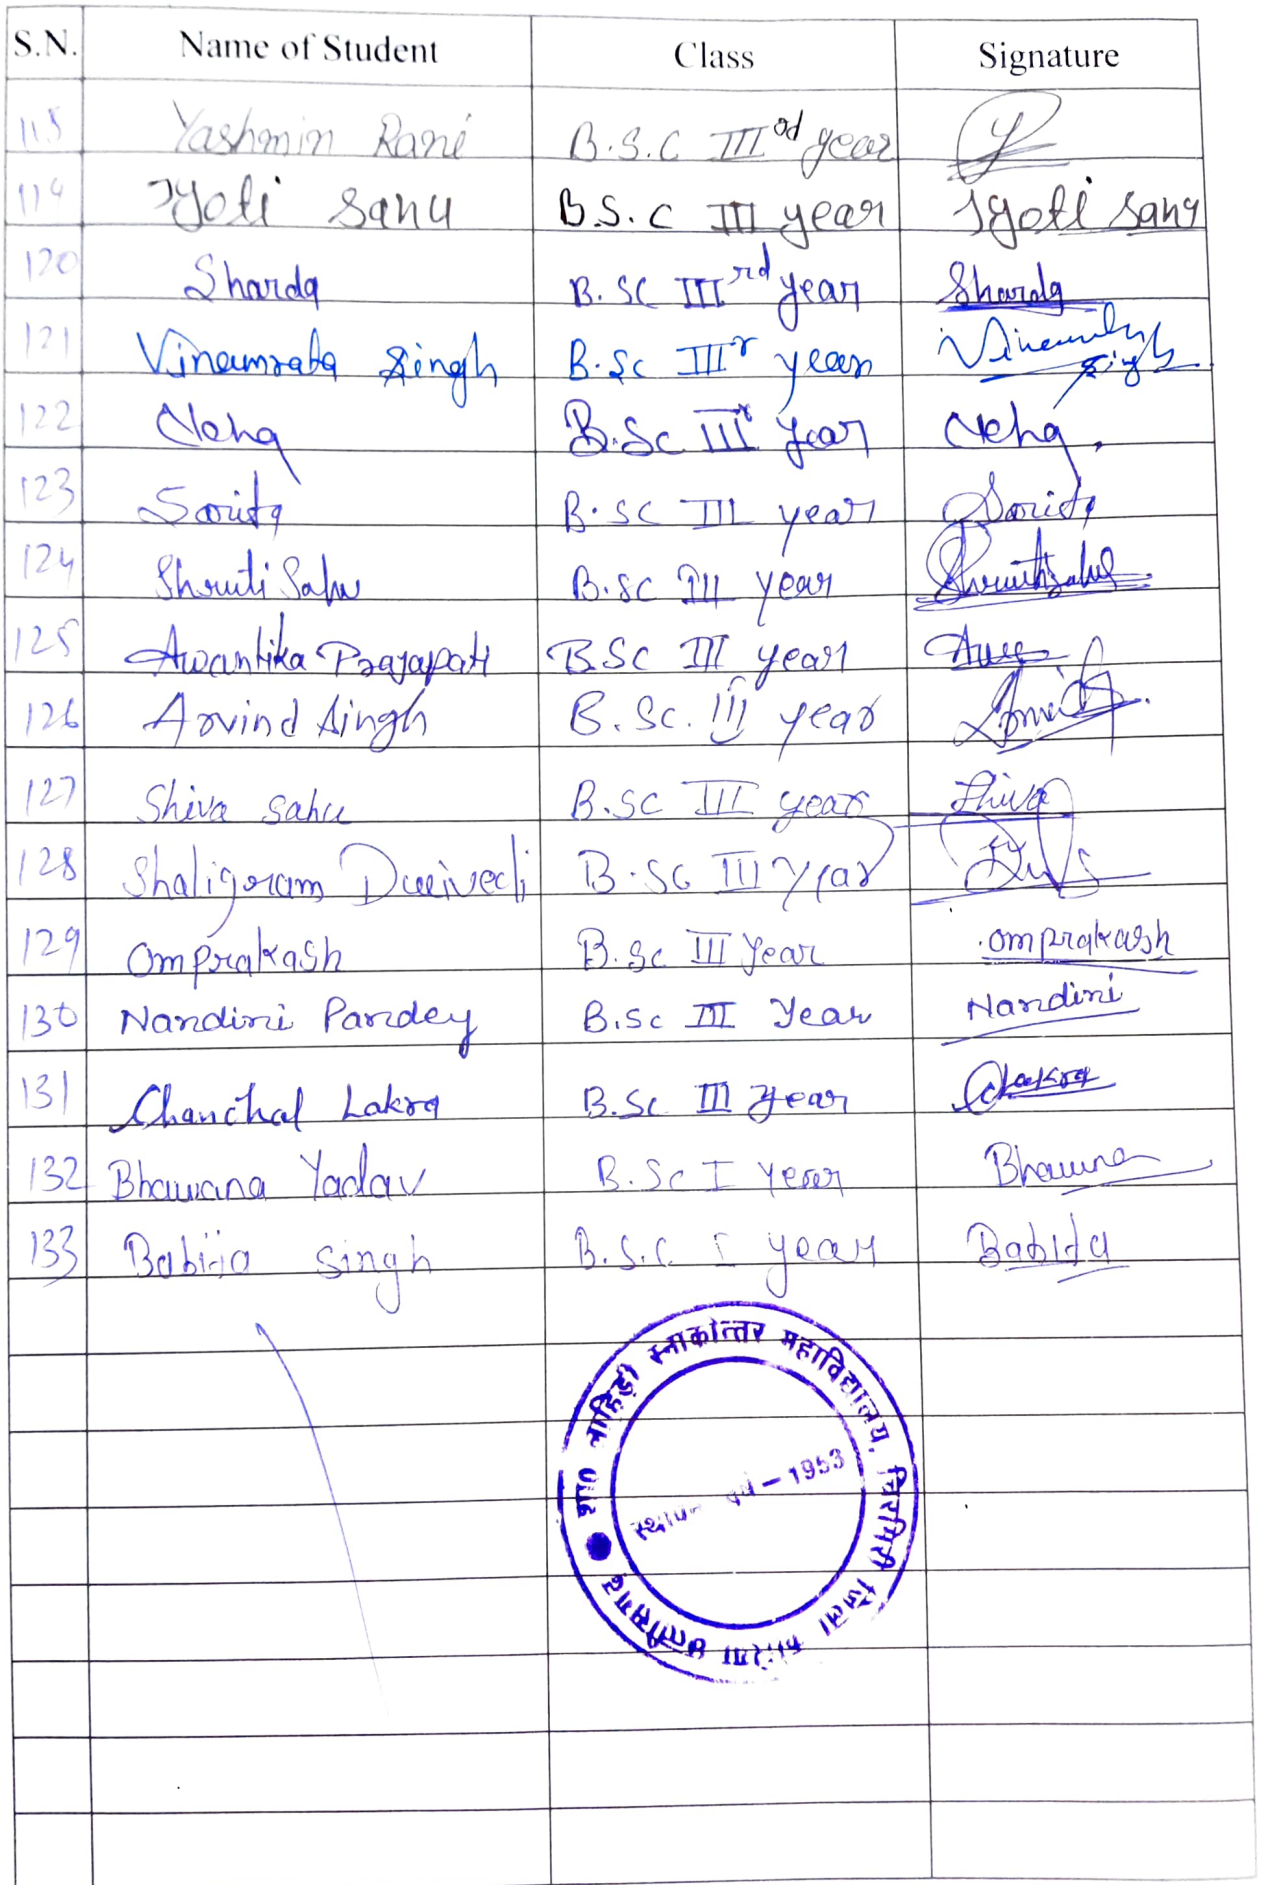 S.N. Name of Student Class Signature
115 Yashmin Rani B.S.C IIIrd year
119 Jyoti Sahu B.S.C III year Jyoti Sahu
120 Sharda B.SC IIIrd year Sharda
121 Vinamrata Singh B.Sc IIIr year Singh
122 Neha B.Sc IIIr Year Neha
123 Sarita B.SC III year Sarita
124 Shruti Sahu B.SC III year Shruti Sahu
125 Awantika Prajapati B.SC III year
126 Arvind Singh B.Sc. III year
127 Shiva Sahu B.SC III year Shiva
128 Shaligram Dwivedi B.SC III Year
129 Omprakash B.Sc III Year omprakash
130 Nandini Pandey B.Sc III Year Nandini
131 Chanchal Lakra B.Sc III Year Lakra
132 Bhawana Yadav B.Sc I Year Bhawna
133 Singh B.S.C I year Babita
शा0 लाहिड़ी स्नाकोत्तर महाविद्यालय, चिरमिरी जिला कोरिया छत्तीसगढ़
वर्ष – 1953